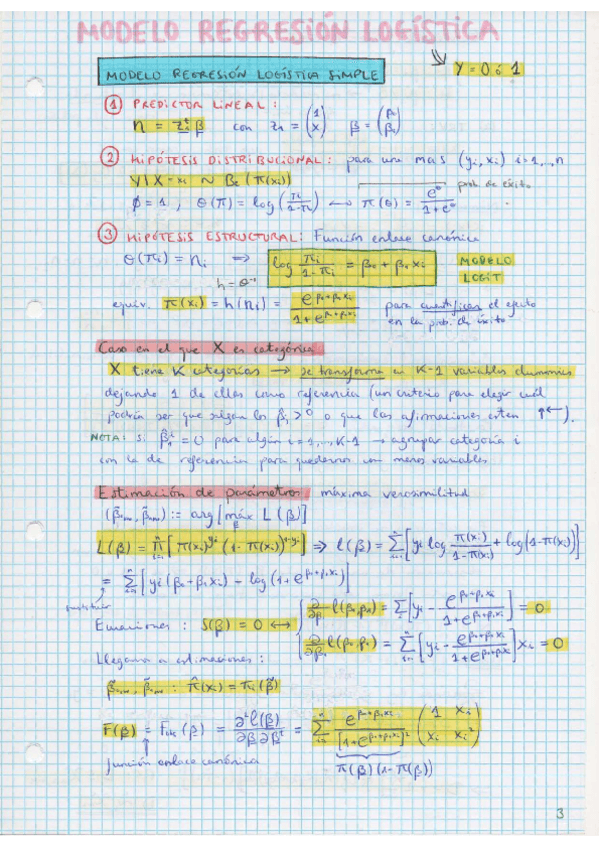 MODELO REGRESIÓN LOGÍSTICA
MODELO REGRESIÓN LOGÍSTICA SIMPLE
Y = 0 ó 1
① PREDICTOR LINEAL:
η = zᵢᵗ β con zᵢ = (1 x) β = (β₀ β₁)
② HIPÓTESIS DISTRIBUCIONAL: para una m.a.s (yᵢ, xᵢ) i=1,..,n
Y|X=xᵢ ~ Be(π(xᵢ)) prob. de éxito
φ = 1 ; θ(π) = log(πᵢ/1-πᵢ) ⟷ π(θ) = e^θ/1+e^θ
③ HIPÓTESIS ESTRUCTURAL: Función enlace canónica
θ(πᵢ) = ηᵢ ⇒ log πᵢ/1-πᵢ = β₀ + β₁ xᵢ MODELO LOGIT
h = θ⁻¹
equiv. π(xᵢ) = h(ηᵢ) = e^(β₀+β₁xᵢ)/1+e^(β₀+β₁xᵢ) para cuantificar el efecto
en la prob. de éxito
Caso en el que X es categórica
X tiene K categorías → se transforma en K-1 variables dummies
dejando 1 de ellas como referencia (un criterio para elegir cuál
podría ser que salgan los βᵢ > 0 o que las afirmaciones estén ↑←).
NOTA: Si β̂₁ⁱ = 0 para algún i=1,..,K-1 → agrupar categoría i
con la de referencia para quedarnos con menos variables
Estimación de parámetros máxima verosimilitud
:= arg[máx_β L(β)]
L(β) = ∏ᵢ₌₁ⁿ [π(xᵢ)^yᵢ (1-π(xᵢ))^1-yᵢ] ⇒ l(β) = ∑ᵢ₌₁ⁿ [yᵢ log π(xᵢ)/1-π(xᵢ) + log(1-π(xᵢ))]
= ∑ᵢ₌₁ⁿ [yᵢ(β₀+β₁xᵢ) - log(1+e^(β₀+β₁xᵢ))]
sustituir
Ecuaciones: S(β) = 0 ⟷ { ∂/∂β₀ l(β₀,β₁) = ∑ᵢ [yᵢ - e^(β₀+β₁xᵢ)/1+e^(β₀+β₁xᵢ)] = 0
∂/∂β₁ l(β₀,β₁) = ∑ᵢ₌₁ⁿ [yᵢ - e^(β₀+β₁xᵢ)/1+e^(β₀+β₁xᵢ)] xᵢ = 0
Llegamos a estimaciones:
: π̂(xᵢ) = πᵢ(β̃)
F(β) = F_obs(β) = ∂²l(β)/∂β∂βᵗ = ∑ᵢ₌₁ⁿ e^(β₀+β₁xᵢ)/[1+e^(β₀+β₁xᵢ)]² (1 xᵢ xᵢ xᵢ²)
función enlace canónica
π(β)(1-π(β))
3